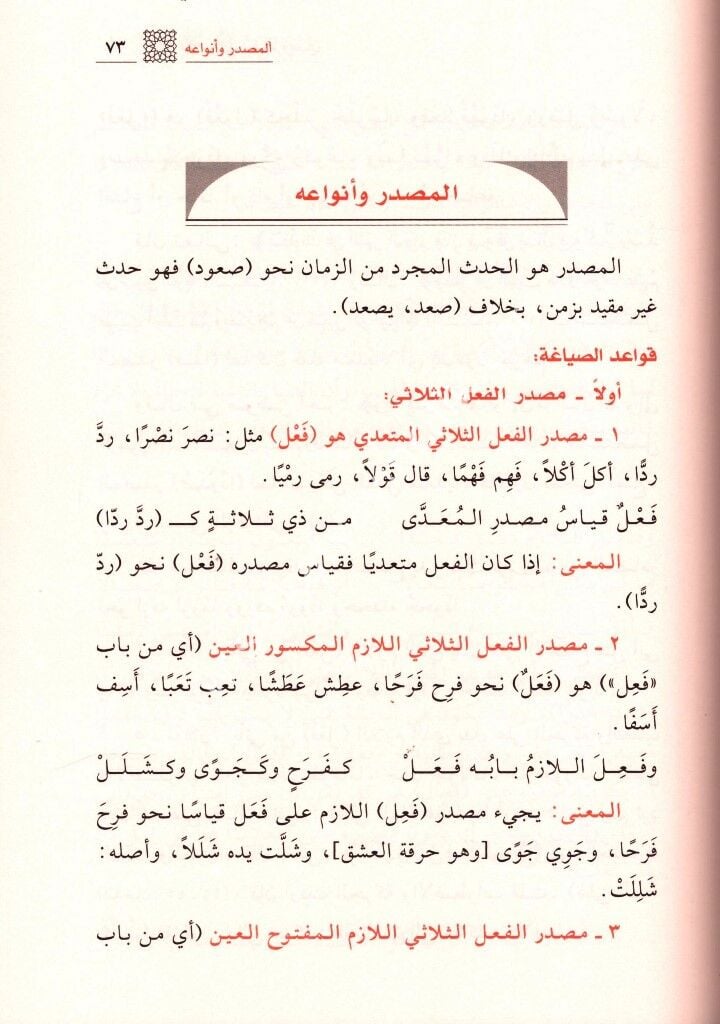 المصدر وأنواعه ٧٣
المصدر وأنواعه
المصدر هو الحدث المجرد من الزمان نحو (صعود) فهو حدث
غير مقيد بزمن، بخلاف (صعد، يصعد).
قواعد الصياغة:
أولاً ـ مصدر الفعل الثلاثي:
١ ـ مصدر الفعل الثلاثي المتعدي هو (فَعْل) مثل: نصرَ نصْرًا، ردَّ
ردًّا، أكلَ أكْلاً، فَهِم فَهْمًا، قال قَوْلاً، رمى رمْيًا.
فَعْلٌ قياسُ مصدرِ المُعَدَّى من ذي ثلاثةٍ كـ (ردَّ ردّا)
المعنى: إذا كان الفعل متعديًا فقياس مصدره (فَعْل) نحو (ردّ
ردًّا).
٢ ـ مصدر الفعل الثلاثي اللازم المكسور العين (أي من باب
«فَعِل») هو (فَعَلٌ) نحو فرِح فَرَحًا، عطِش عَطَشًا، تعِب تَعَبًا، أَسِف
أَسَفًا.
وفَعِلَ اللازمُ بابُه فَعَلْ كفَرَحٍ وكَجَوًى وكشَلَلْ
المعنى: يجيء مصدر (فَعِل) اللازم على فَعَل قياسًا نحو فرِحَ
فَرَحًا، وجَوِي جَوًى [وهو حرقة العشق]، وشَلَّت يده شَلَلاً، وأصله:
شَلِلَتْ.
٣ ـ مصدر الفعل الثلاثي اللازم المفتوح العين (أي من باب